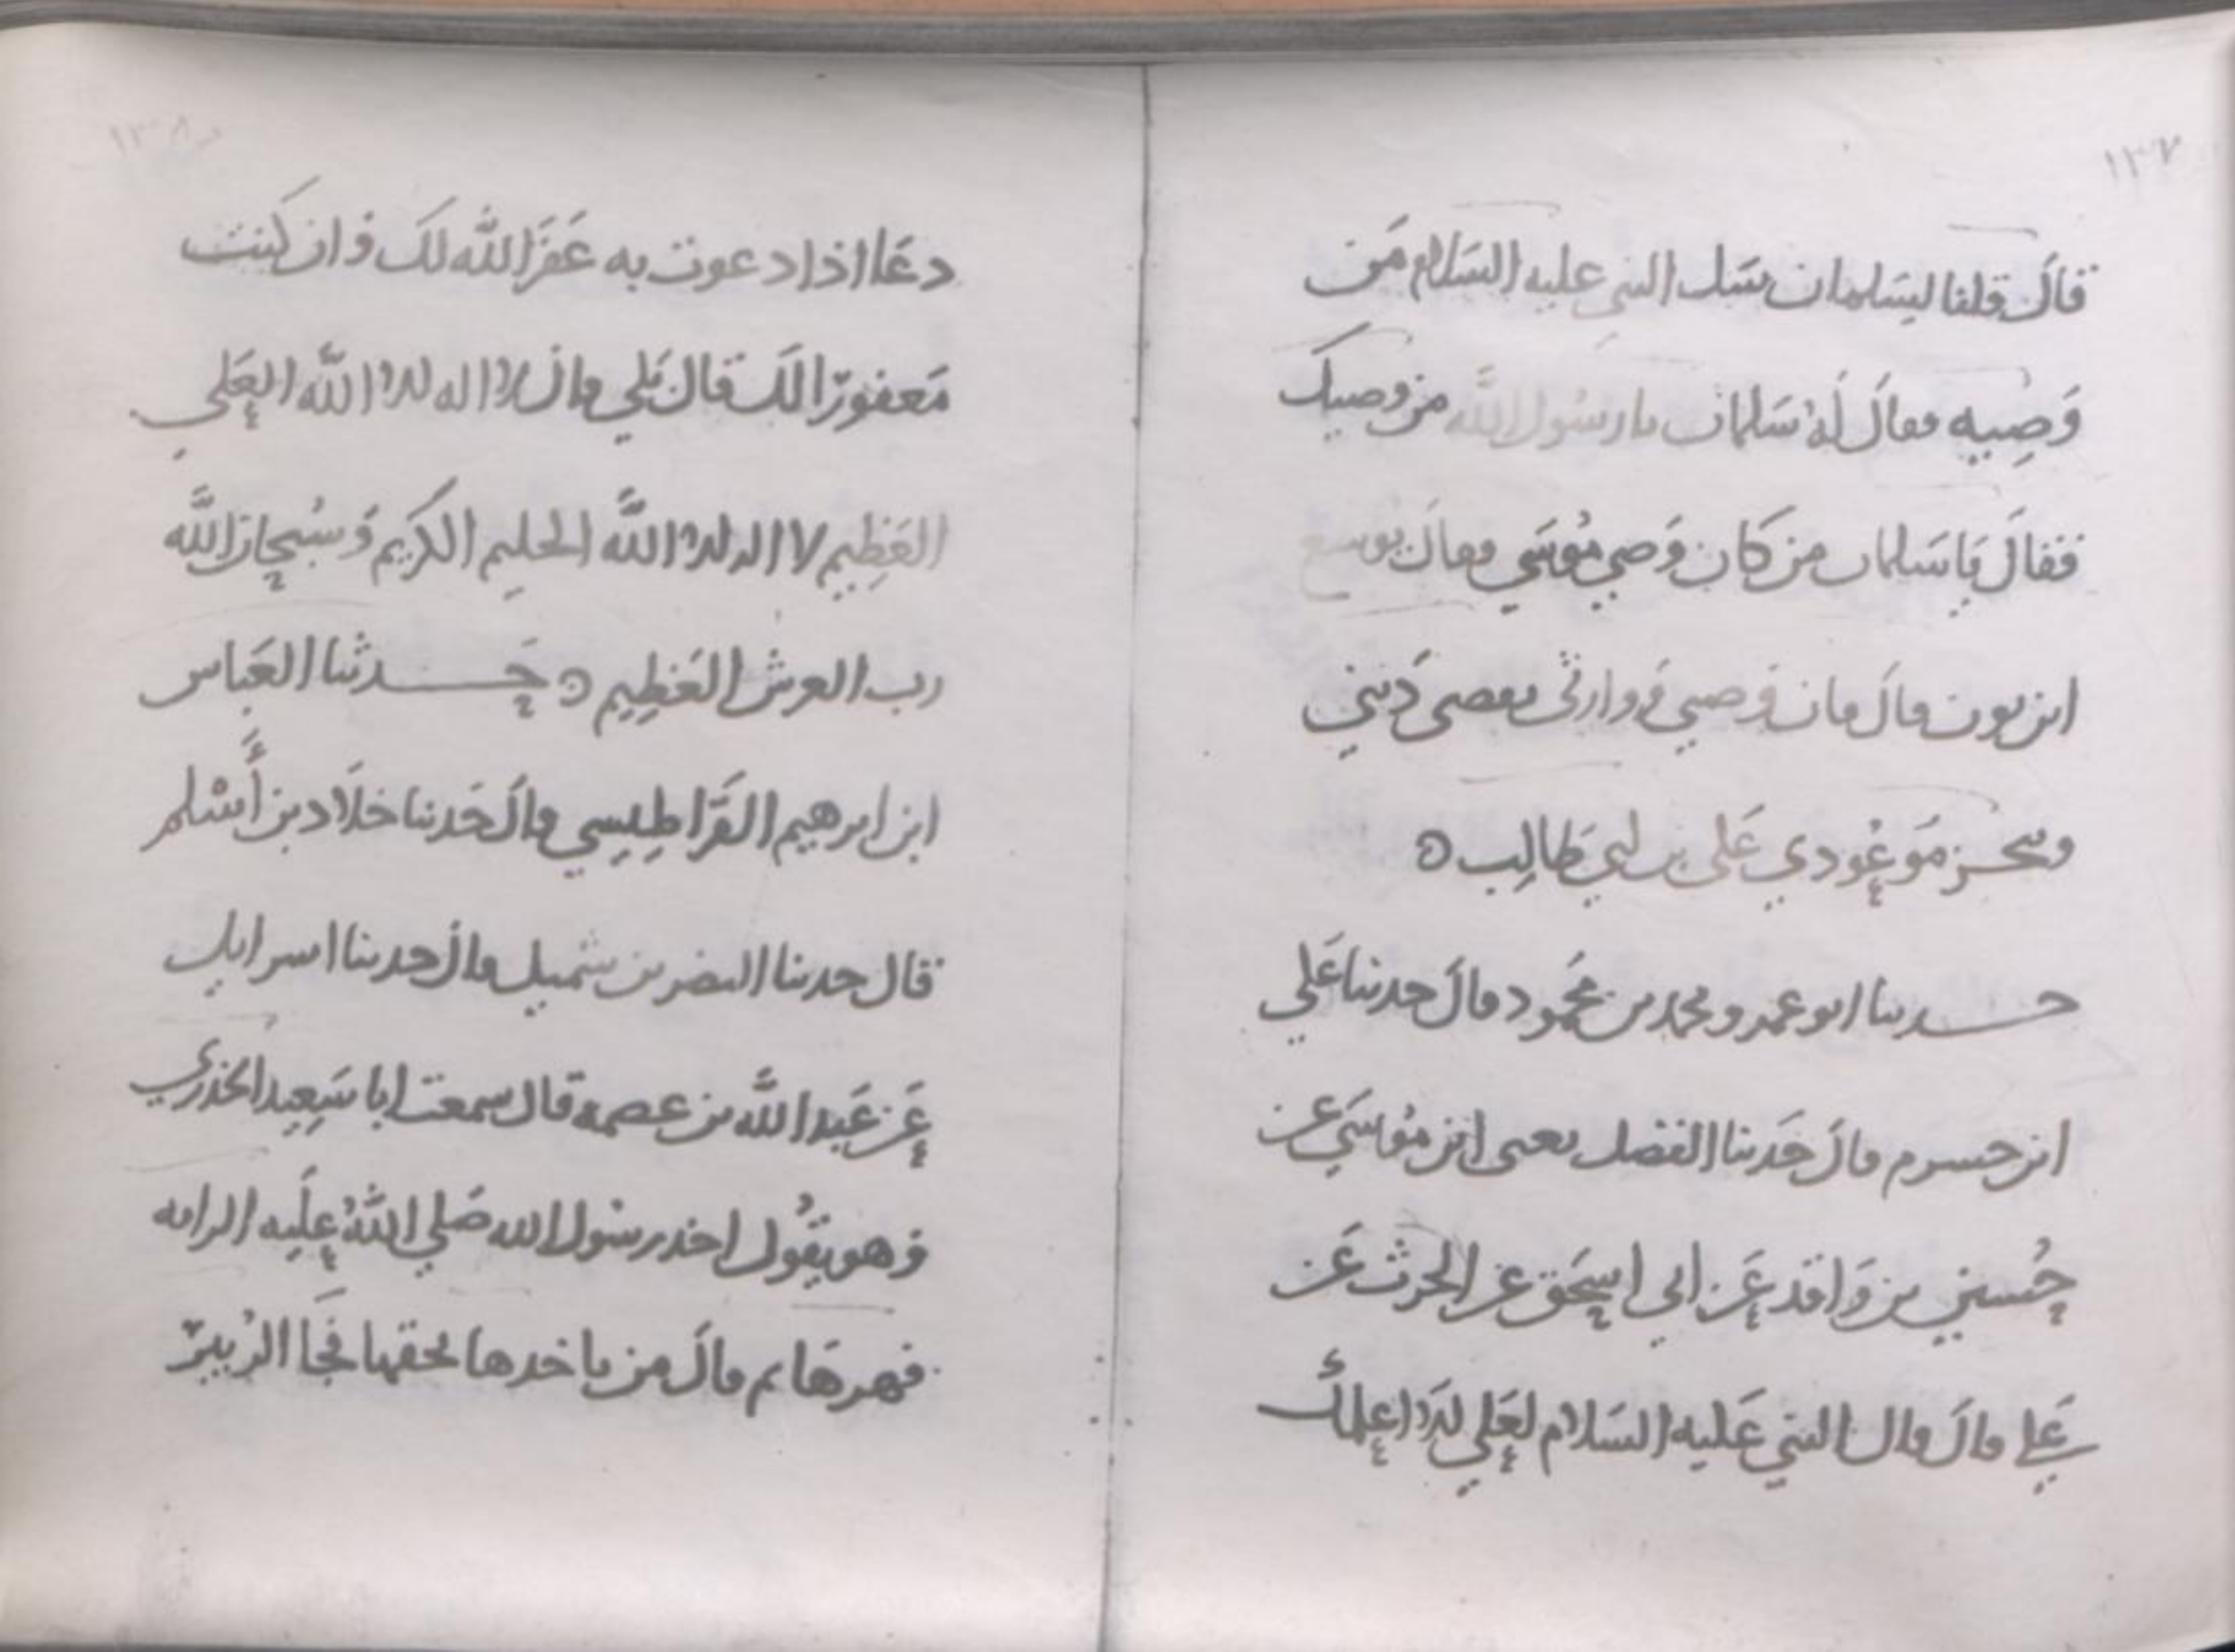 ١٣٧
قالَ قلنا لسَلمان سَل النبي عليه السَلام مَن
وَصِيه فقالَ لَهُ سَلمان يا رسُول اللَّه من وصيك
فقالَ يَا سَلمان من كَان وَصي مُوسَي فقال يوسع
ابن نون قالَ فان وَصيي وَوارثى يقصى دَيني
وينجز مَوعُودي عَلى بن ابي طالِب ه
حدثنا ابو عمرو محمد بن محَمود قالَ حدثنا عَلي
ابن خسرم قالَ حَدثنا الفضل يعنى ابن مُوسَي عن
حُسين بن وَاقد عَن ابي اسحَق عن الحرث عَن
عَلي قالَ قال النبي عَليه السَلام لعَلي الَا اعلمكَ
١٣٨
دعَا اذا دعوت به غفَرَ الله لكَ وان كنت
مَغفورًا لكَ قالَ بَلي قالَ لا اله الا اللَّه العَلي
العَظِيم لا اله الا اللَّه الحليم الكَريم وَسُبحان اللَّه
رب العرش العَظِيم ه حَدثنا العَباس
ابن ابرهيم القَرَاطِيسِي قالَ حَدثنا خلَاد بن أَسْلم
قال حدثنا النضر بن شميل قالَ حدثنا اسرايل
عَن عَبد اللَّه بن عصمة قال سمعت ابا سَعِيد الخدري
وَهو يقُول اخد رسول الله صَلي اللَّهُ عَلَيه الرايه
فهزهَا ثم قالَ من ياخدها بحقها فجَا الزُبيرَ